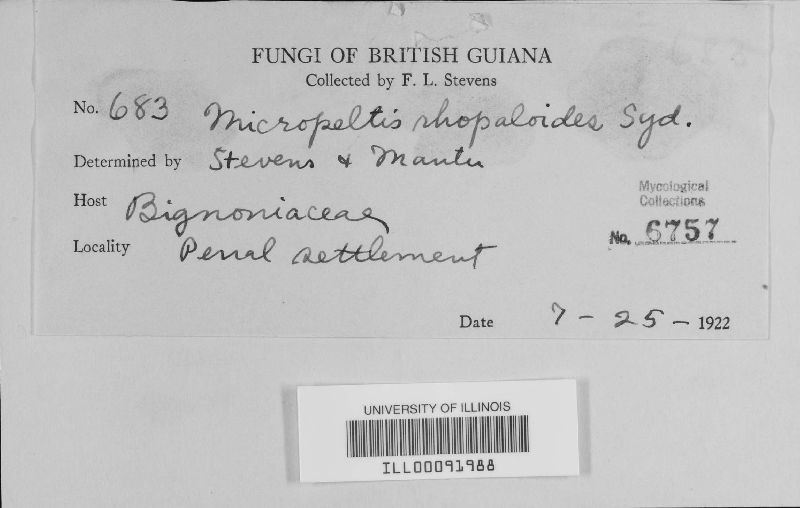 FUNGI OF BRITISH GUIANA
Collected by F. L. Stevens
No. 683 Micropeltis rhopaloides Syd.
Determined by Stevens & Manter
Host Bignoniaceae
Mycological
Collections
No. 6757
Locality Penal settlement
Date 7 - 25 - 1922
UNIVERSITY OF ILLINOIS
ILL00091988